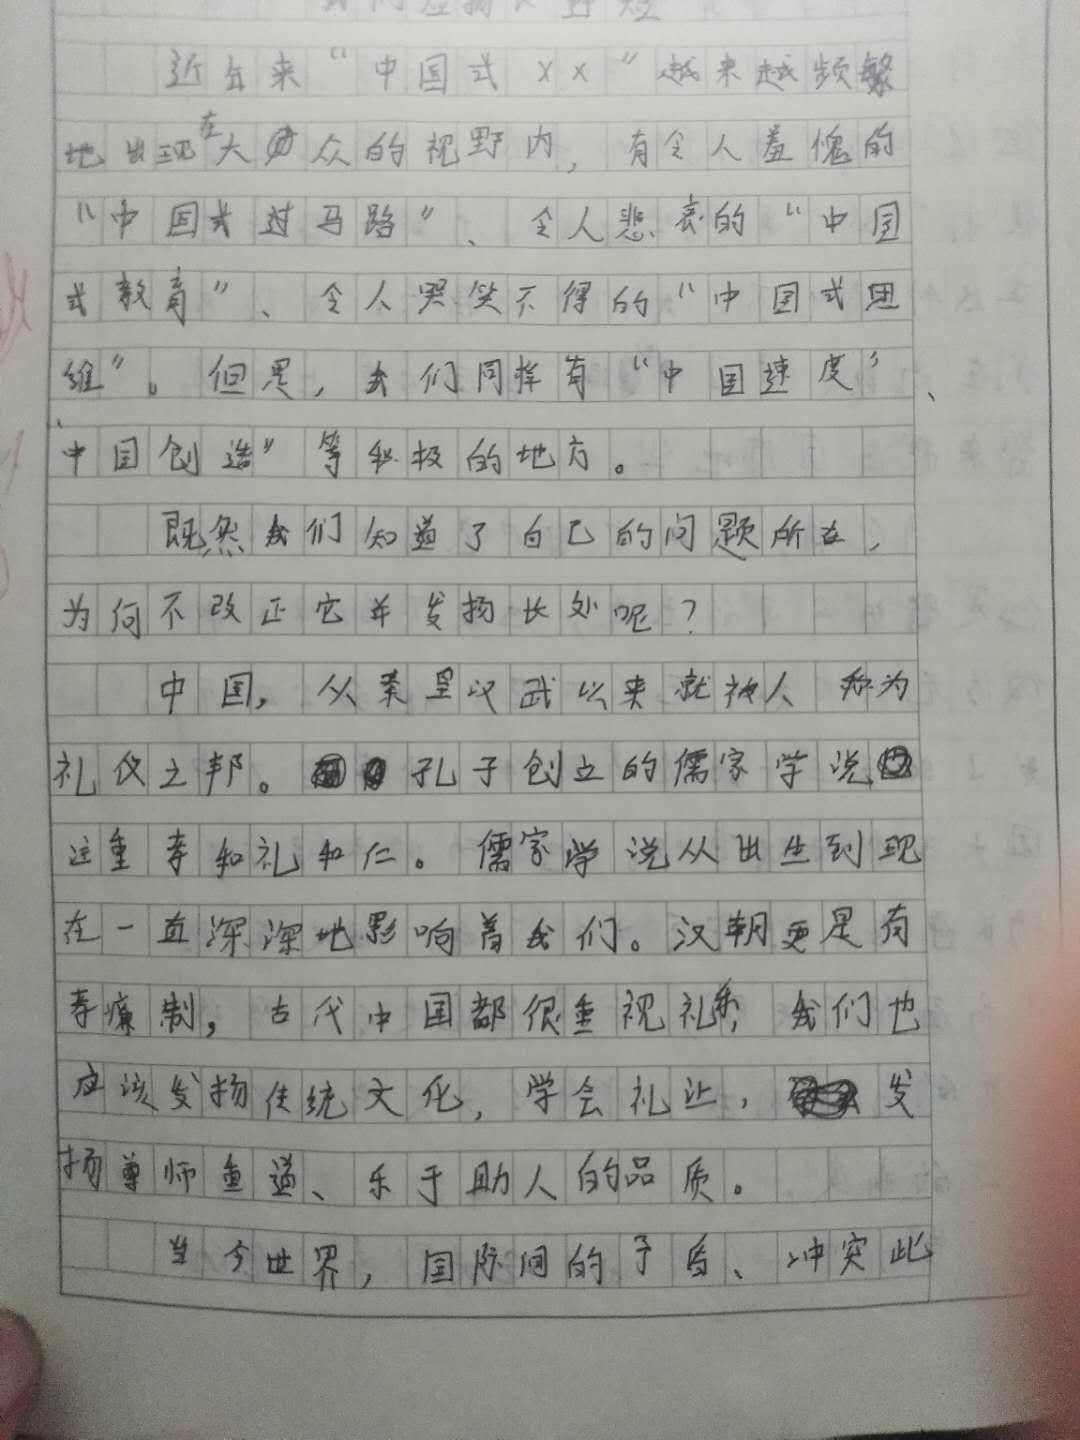 我们应扬长避短
近年来“中国式××”越来越频繁
地出现在大众的视野内，有令人羞愧的
“中国式过马路”、令人悲哀的“中国
式教育”、令人哭笑不得的“中国式思
维”。但是，我们同样有“中国速度”、
“中国创造”等积极的地方。
既然我们知道了自己的问题所在，
为何不改正它并发扬长处呢？
中国，从秦皇汉武以来就被人称为
礼仪之邦。孔子创立的儒家学说
注重孝和礼和仁。儒家学说从出生到现
在一直深深地影响着我们。汉朝更是有
孝廉制，古代中国都很重视礼乐，我们也
应该发扬传统文化，学会礼让，发
扬尊师重道、乐于助人的品质。
当今世界，国际间的矛盾、冲突此